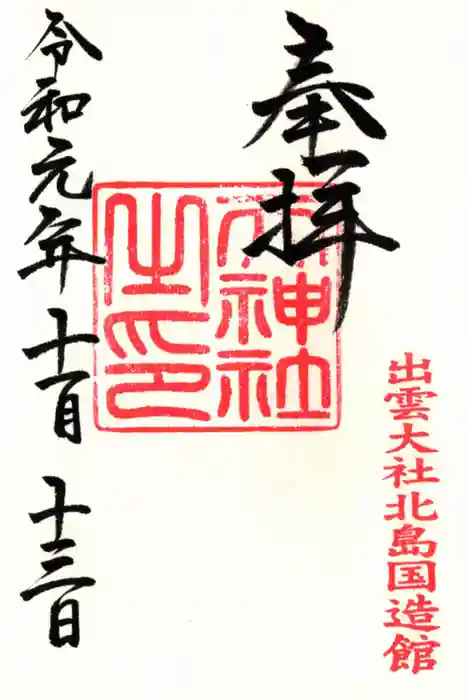 出雲大社北島国造館
奉拝
神社
之印
令和元年十一月十三日